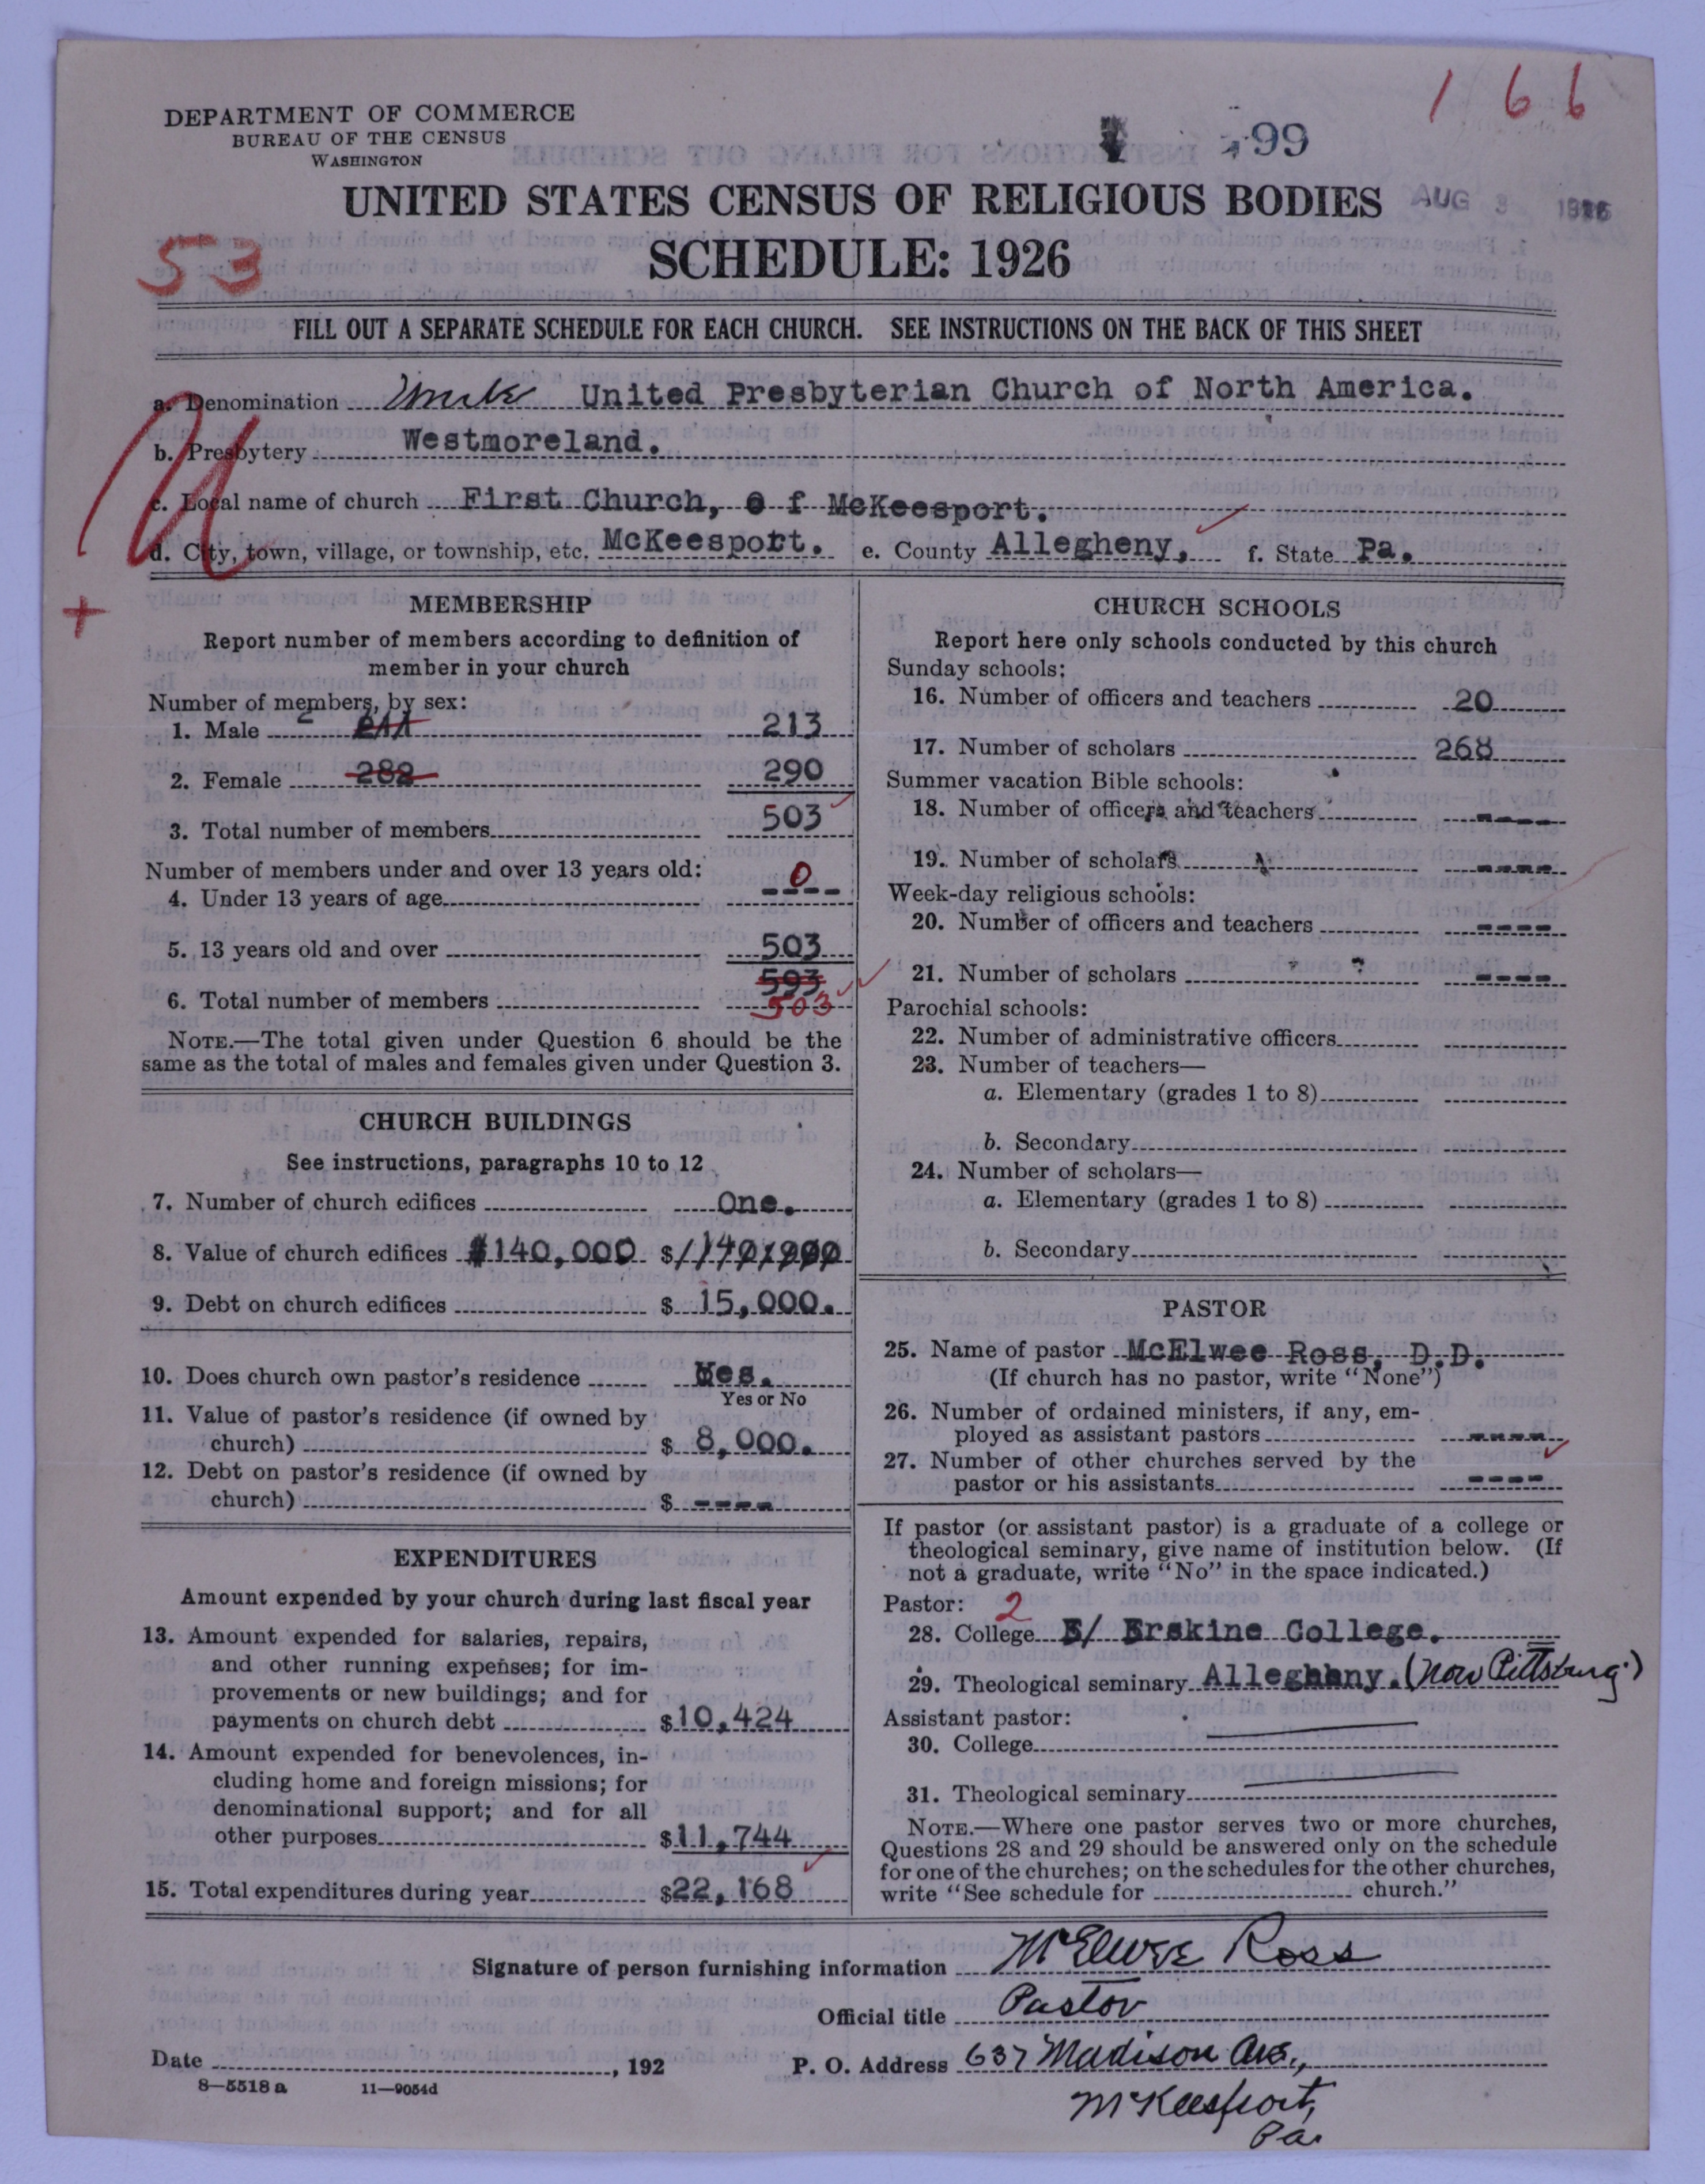 1 6 6
DEPARTMENT OF COMMERCE
BUREAU OF THE CENSUS
WASHINGTON
99
UNITED STATES CENSUS OF RELIGIOUS BODIES
AUG 3 1926
SCHEDULE: 1926
53
FILL OUT A SEPARATE SCHEDULE FOR EACH CHURCH. SEE INSTRUCTIONS ON THE BACK OF THIS SHEET
a. Denomination United Presbyterian Church of North America.
b. Presbytery Westmoreland.
c. Local name of church First Church, o f McKeesport.
d. City, town, village, or township, etc. McKeesport. e. County Allegheny, f. State Pa.
+
MEMBERSHIP
Report number of members according to definition of
member in your church
Number of members, by sex:
1. Male 211 213
2. Female 288 290
3. Total number of members 503
Number of members under and over 13 years old:
4. Under 13 years of age ---- 0
5. 13 years old and over 503
593
6. Total number of members 503
NOTE.—The total given under Question 6 should be the
same as the total of males and females given under Question 3.
CHURCH BUILDINGS
See instructions, paragraphs 10 to 12
7. Number of church edifices One.
8. Value of church edifices $140,000 $
9. Debt on church edifices $ 15,000.
10. Does church own pastor's residence Yes.
Yes or No
11. Value of pastor's residence (if owned by
church) $ 8,000.
12. Debt on pastor's residence (if owned by
church) $ ----
EXPENDITURES
Amount expended by your church during last fiscal year
13. Amount expended for salaries, repairs,
and other running expenses; for im-
provements or new buildings; and for
payments on church debt $10,424
14. Amount expended for benevolences, in-
cluding home and foreign missions; for
denominational support; and for all
other purposes $11,744
15. Total expenditures during year $22,168
CHURCH SCHOOLS
Report here only schools conducted by this church
Sunday schools:
16. Number of officers and teachers 20
17. Number of scholars 268
Summer vacation Bible schools:
18. Number of officers and teachers ----
19. Number of scholars ----
Week-day religious schools:
20. Number of officers and teachers ----
21. Number of scholars ----
Parochial schools:
22. Number of administrative officers
23. Number of teachers—
a. Elementary (grades 1 to 8)
b. Secondary
24. Number of scholars—
a. Elementary (grades 1 to 8)
b. Secondary
PASTOR
25. Name of pastor McElwee Ross, D.D.
(If church has no pastor, write "None")
26. Number of ordained ministers, if any, em-
ployed as assistant pastors ----
27. Number of other churches served by the
pastor or his assistants ----
If pastor (or assistant pastor) is a graduate of a college or
theological seminary, give name of institution below. (If
not a graduate, write "No" in the space indicated.)
Pastor: 2
28. College E/ Erskine College.
29. Theological seminary Alleghany. (now Pittsburg)
Assistant pastor:
30. College
31. Theological seminary
NOTE.—Where one pastor serves two or more churches,
Questions 28 and 29 should be answered only on the schedule
for one of the churches; on the schedules for the other churches,
write "See schedule for church."
Signature of person furnishing information McElwee Ross
Official title Pastor
Date , 192 P. O. Address 637 Madison Ave.,
McKeesport,
Pa.
8—5518 a 11—9054d